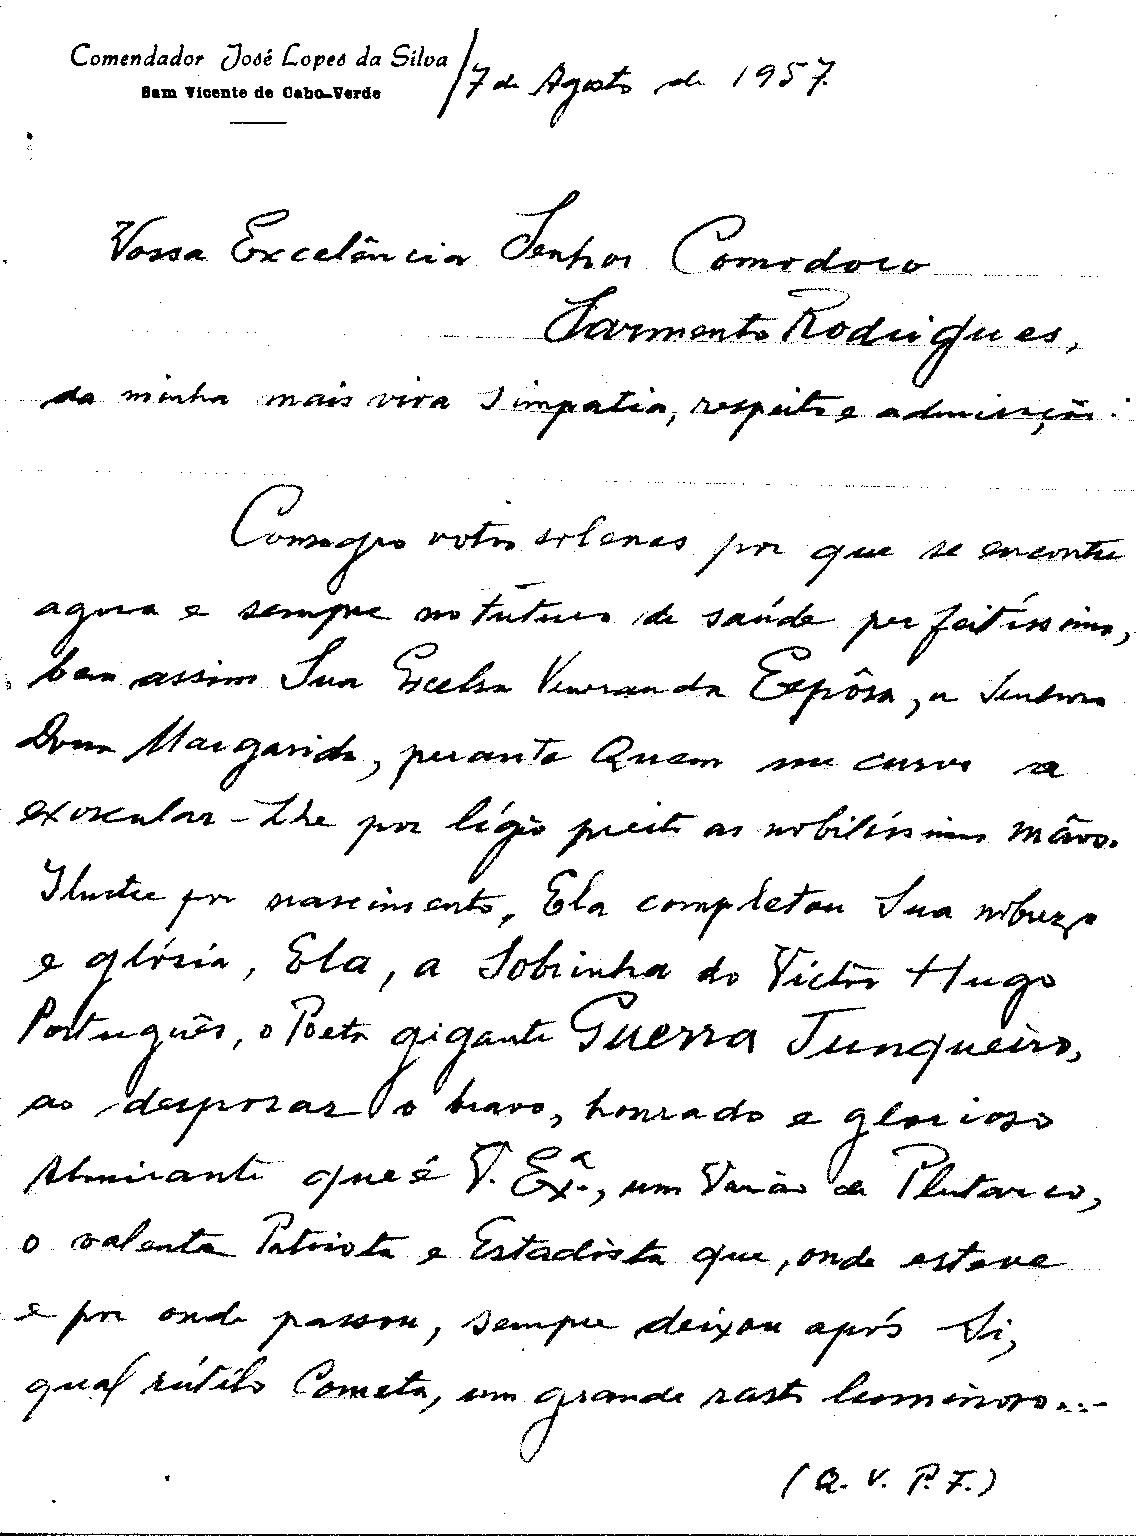 Comendador José Lopes da Silva
Sam Vicente de Cabo-Verde
/7 de Agosto de 1957.
Vossa Excelência Senhor Comodoro
Sarmento Rodrigues,
da minha mais viva simpatia, respeito e admiração:
Consagro votos solenes por que se encontre
agora e sempre no futuro de saúde perfeitíssima,
bem assim Sua Excelsa Veneranda Espôsa, a Senhora
Dona Margarida, perante Quem me curvo a
exoscular-Lhe por lígio preito as nobilíssimas mãos.
Ilustre por nascimento, Ela completou Sua nobreza
e glória, Ela, a Sobrinha do Victor Hugo
Português, o Poeta gigante Guerra Junqueiro,
ao desposar o bravo, honrado e glorioso
Almirante que é V. Exª., um Varão de Plutarco,
o valente Patriota e Estadista que, onde esteve
e por onde passou, sempre deixou após Si,
qual rútilo Cometa, um grande rasto luminoso...-
(Q. V. P. F.)